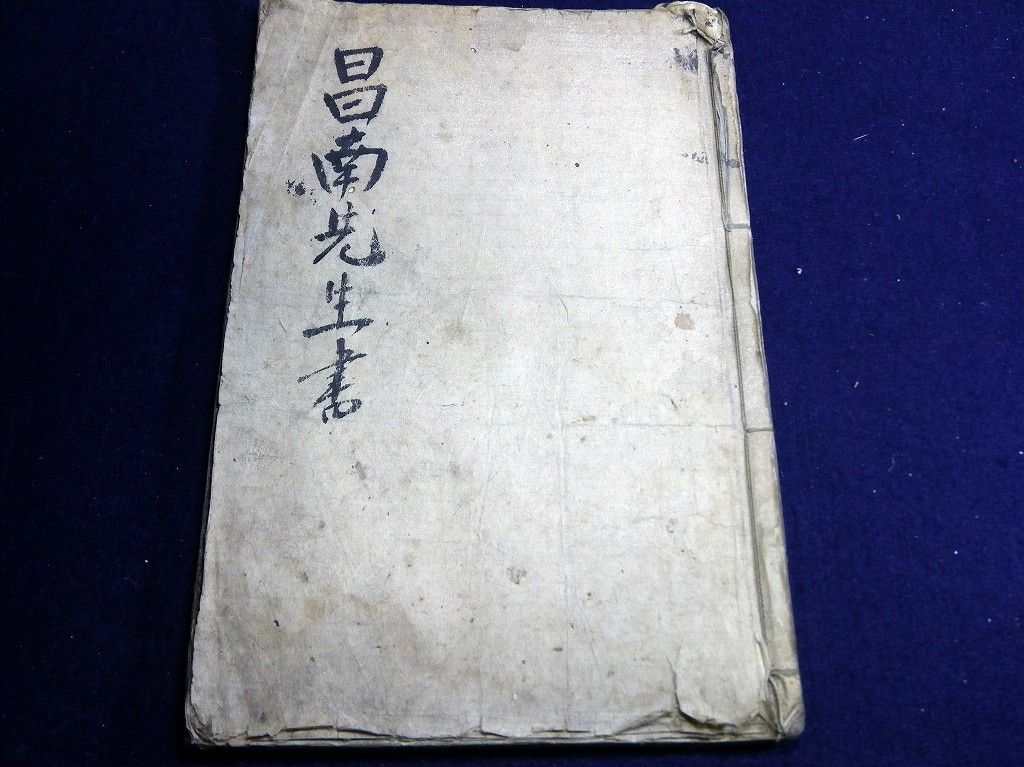 昌南先生書